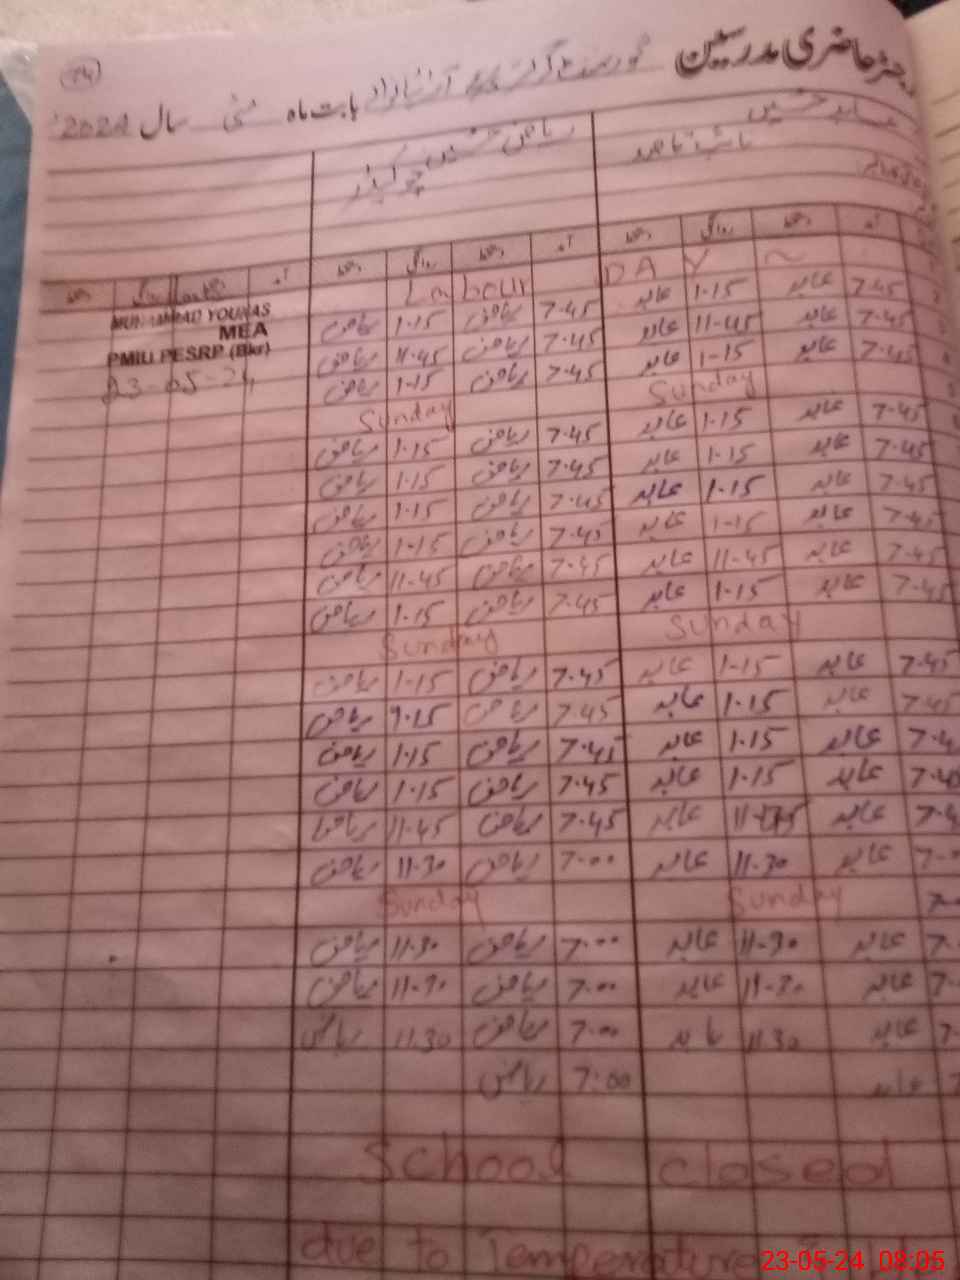 رجسٹر حاضری مدرسین گورنمنٹ گرلز بابت ماہ مئی سال 2024
عابد حسین ریاض حسین
نائب قاصد چوکیدار
آمد دستخط روانگی دستخط آمد دستخط روانگی دستخط آمد دستخط روانگی دستخط
Labour DAY
7-45 عابد 1-15 عابد 7-45 ریاض 1-15 ریاض
MUHAMMAD YOUNAS
7-45 عابد 11-45 عابد 7-45 ریاض 11-45 ریاض
MEA
7-45 عابد 1-15 عابد 7-45 ریاض 1-15 ریاض
PMIU PESRP (Bkr)
23-05-24
Sunday Sunday
7-45 عابد 1-15 عابد 7-45 ریاض 1-15 ریاض
7-45 عابد 1-15 عابد 7-45 ریاض 1-15 ریاض
7-45 عابد 1-15 عابد 7-45 ریاض 1-15 ریاض
7-45 عابد 1-15 عابد 7-45 ریاض 1-15 ریاض
7-45 عابد 11-45 عابد 7-45 ریاض 11-45 ریاض
7-45 عابد 1-15 عابد 7-45 ریاض 1-15 ریاض
Sunday Sunday
7-45 عابد 1-15 عابد 7-45 ریاض 1-15 ریاض
7-45 عابد 1-15 عابد 7-45 ریاض 9-15 ریاض
عابد 1-15 عابد 7-45 ریاض 1-15 ریاض
عابد 1-15 عابد 7-45 ریاض 1-15 ریاض
عابد 11-45 عابد 7-45 ریاض 11-45 ریاض
عابد 11-30 عابد 7-00 ریاض 11-30 ریاض
Sunday Sunday
عابد 11-30 عابد 7-00 ریاض 11-30 ریاض
عابد 11-30 عابد 7-00 ریاض 11-30 ریاض
عابد 11-30 عابد 7-00 ریاض 11-30 ریاض
عابد 7:00 ریاض
School closed
due to Temperature
23-05-24 08:05